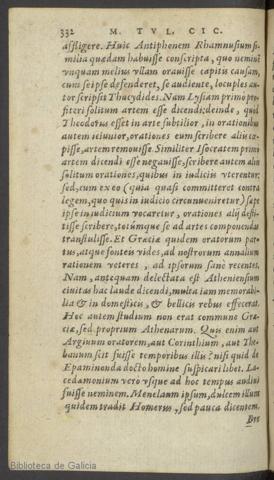 332 M. TVL. CIC.
affligere. Huic Antiphonem Rhamnusium si-
milia quædam habuisse conscripta, quo nemini
vnquam melius vllam orauisse capitis causam,
cum se ipse defenderet, se audiente, locuples au-
tor scripsit Thucydides. Nam Lysiam primo pro-
fiteri solitum artem esse dicendi: deinde, quod
Theodorus esset in arte subtilior, in orationibus
autem ieiunior, orationes eum scribere alijs cœ-
pisse, artem remouisse. Similiter Isocratem primo
artem dicendi esse negauisse, scribere autem alijs
solitum orationes, quibus in iudicijs vterentur:
sed, cum ex eo (quia quasi committeret contra
legem, quo quis in iudicio circunueniretur) sæpe
ipse in iudicium vocaretur, orationes alijs desti-
tisse scribere, totúmque se ad artes componendas
transtulisse. Et Græciæ quidem oratorum par-
tus, atque fonteis vides, ad nostrorum annalium
rationem veteres, ad ipsorum sanè recentes.
Nam, antequam delectata est Atheniensium
ciuitas hac laude dicendi, multa iam memorabi-
lia & in domesticis, & bellicis rebus effecerat.
Hoc autem studium non erat commune Græ-
ciæ, sed proprium Athenarum. Quis enim aut
Argiuum oratorem, aut Corinthium, aut The-
banum scit fuisse temporibus illis? nisi quid de
Epaminonda docto homine suspicari libet. La-
cedæmonium verò vsque ad hoc tempus audiui
fuisse neminem. Menelaum ipsum, dulcem illum
quidem tradit Homerus, sed pauca dicentem.
Biblioteca de Galicia